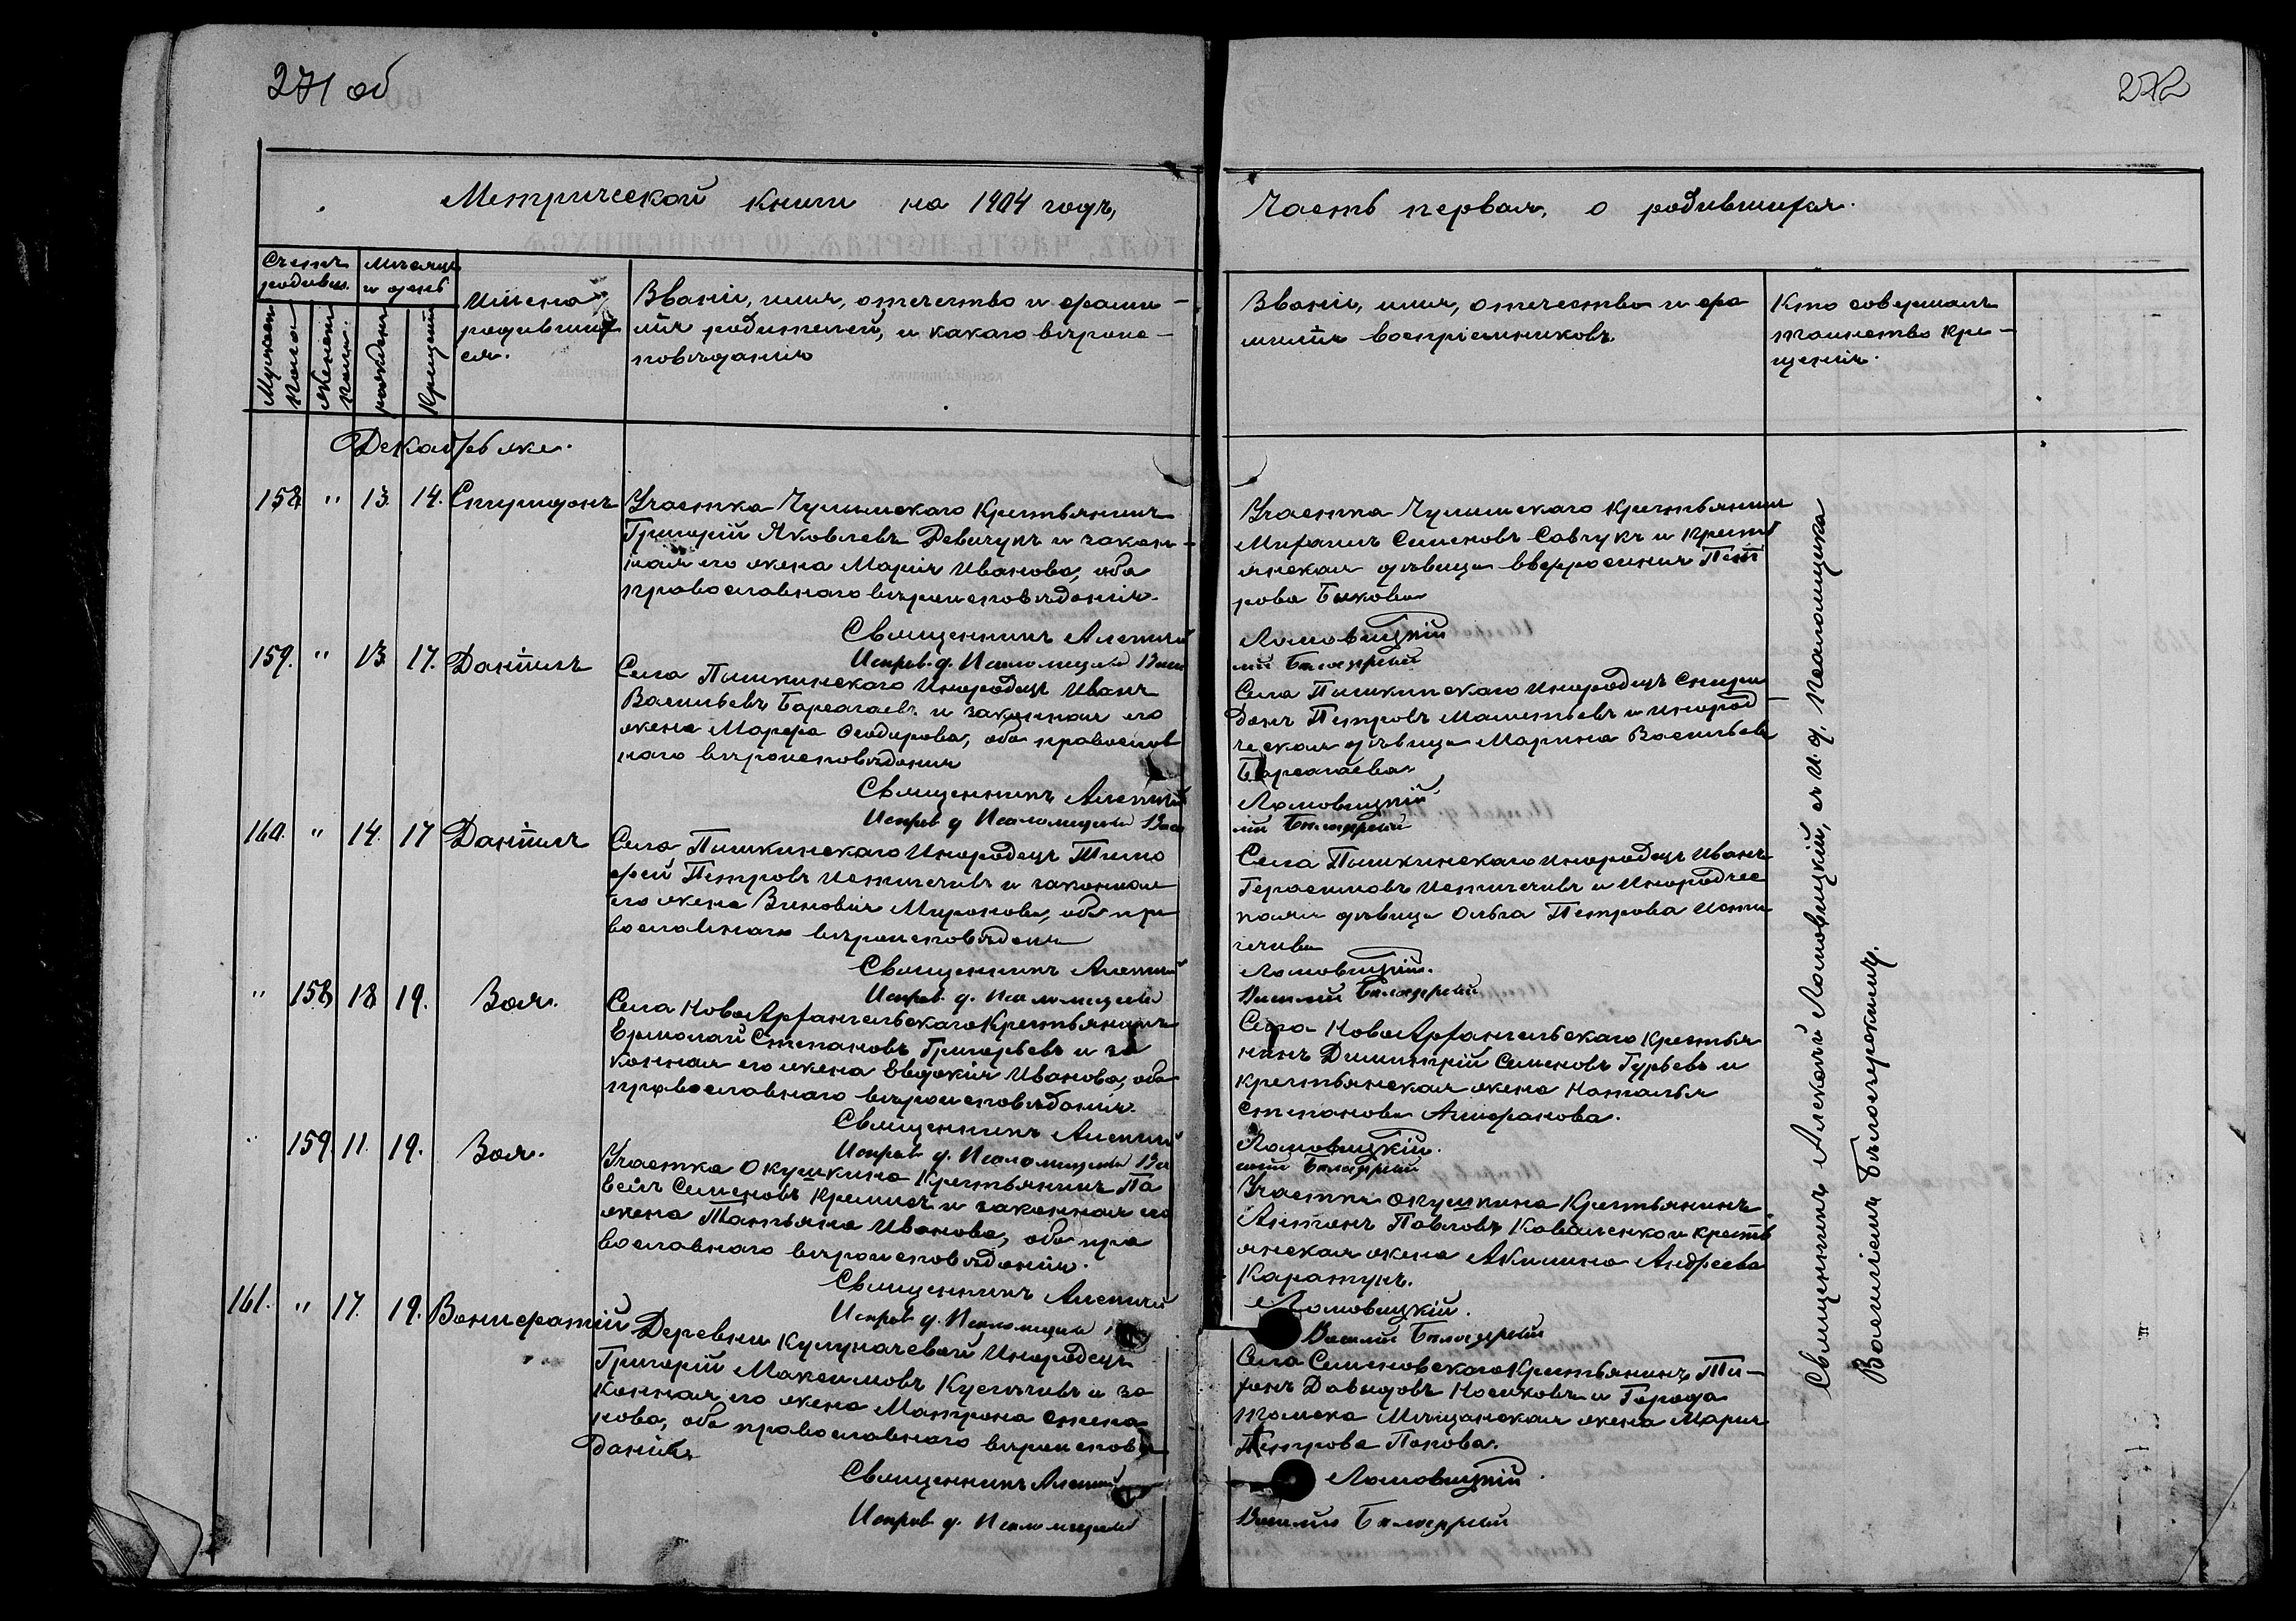 271 об
272
Метрической книги на 1904 годъ,
Часть первая, о родившихся.
Счетъ родивш.
Мѣсяцъ и день
Мужеска пола
Женска пола.
рожден
Крещен
Имена
родивших
ся.
Званіе, имя, отечество и фами-
лія родителей, и какого вѣроис-
повѣданія
Званіе, имя, отечество и фа
милія воспріемниковъ.
Кто совершалъ
таинство кре-
щенія.
Декабрь же.
158 " 13. 14. Спиридонъ
Участка Чулымскаго Крестьянинъ
Григорій Яковлевъ Девичукъ и закон-
ная его жена Марія Иванова, оба
православнаго вѣроисповѣданія.
Священникъ Алексій
Исправ. д. Псаломщика Васи
Участка Чулымскаго Крестьянинъ
Михаилъ Семеновъ Савчукъ и Крестъ
янская дѣвица Евфросинія Пет
рова Быкова
Ломовицкій
лій Бѣлозерскій
159. " 13. 17. Даніилъ
Села Пышкинскаго Инородецъ Иванъ
Васильевъ Барсагаевъ и законная его
жена Марфа Ѳеодорова, оба православ
наго вѣроисповѣданія
Священникъ Алексій
Исправ. д. Псаломщика Васи
Села Пышкинскаго Инородецъ Спири
донъ Петровъ и инород-
ческая дѣвица Марина Васильева
Барсагаева
Ломовицкій
лій Бѣлозерскій
160. " 14. 17 Даніилъ
Села Пышкинскаго Инородецъ Тимо
фей Петровъ Испигечевъ и законная
его жена Зиновія Миронова, оба пра
вославнаго вѣроисповѣданія
Священникъ Алексій
Исправ. д. Псаломщика
Села Пышкинскаго Инородецъ Иванъ
Герасимовъ Испигечевъ и Инородчес
кая дѣвица Ольга Петрова Испи
гечева
Ломовицкій.
Василій Бѣлозерскій
" 158 18 19. Зоя.
Села НовоАрхангельскаго Крестьянинъ
Ермолай Степановъ Григорьевъ и за
конная его жена Евдокія Иванова, оба
православнаго вѣроисповѣданія.
Священникъ Алексій
Исправ. д. Псаломщика Ва
Села НовоАрхангельскаго Крестья
нинъ Димитрій Семеновъ Гурьевъ и
крестьянская жена Наталья
Степанова Алиферанова.
Ломовицкій.
силій Бѣлозерскій
" 159. 11. 19. Зоя.
Участка Окушкина Крестьянинъ Па
велъ Семеновъ и законная его
жена Татьяна Иванова, оба пра
вославнаго вѣроисповѣданія.
Священникъ Алексій
Исправ. д. Псаломщика
Участка Окушкина Крестьянинъ
Антонъ Павловъ Коваленко и крестъ
янская жена Акилина Андреева
Каратунъ.
Ломовицкій.
Василій Бѣлозерскій
161. " 17. 19. Вонифатій
Деревни Кулуначевой Инородецъ
Григорій Максимовъ и за
конная его жена Матрона Степа
нова, оба православнаго вѣроисповѣ
данія
Священникъ Алексій
Исправ. д. Псаломщика
Села Семеновскаго Крестьянинъ Ти-
ханъ Давыдовъ Носиковъ и Города
Томска Мѣщанская жена Марія
Петрова Попова.
Ломовицкій.
Василій Бѣлозерскій
Священникъ Алексій Ломовицкій, съ И. д. псаломщика
Василіемъ Бѣлозерскимъ.